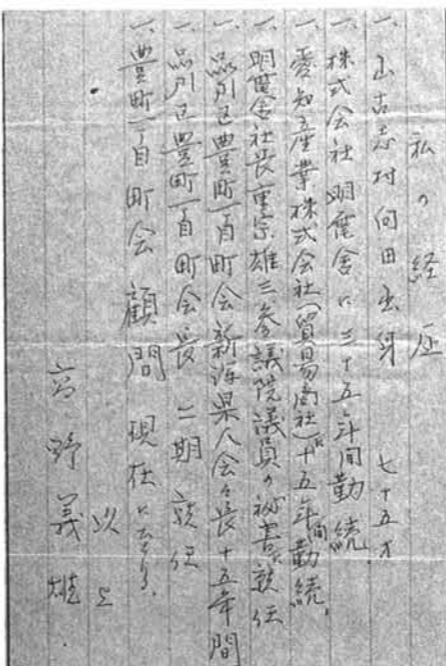 私の経歴
一、山古志村向田出身 七十五才
一、株式会社明電舎に三十五年間勤続、
一、愛知産業株式会社(貿易商社)に十五年間勤続、
一、明電舎社長重宗雄三参議院議員の秘書に就任
一、品川区豊町一丁目町会新潟県人会々長十五年間
一、品川区豊町一丁目町会長 二期就任
一、豊町一丁目町会顧問 現在に至る、
以上
高野義雄